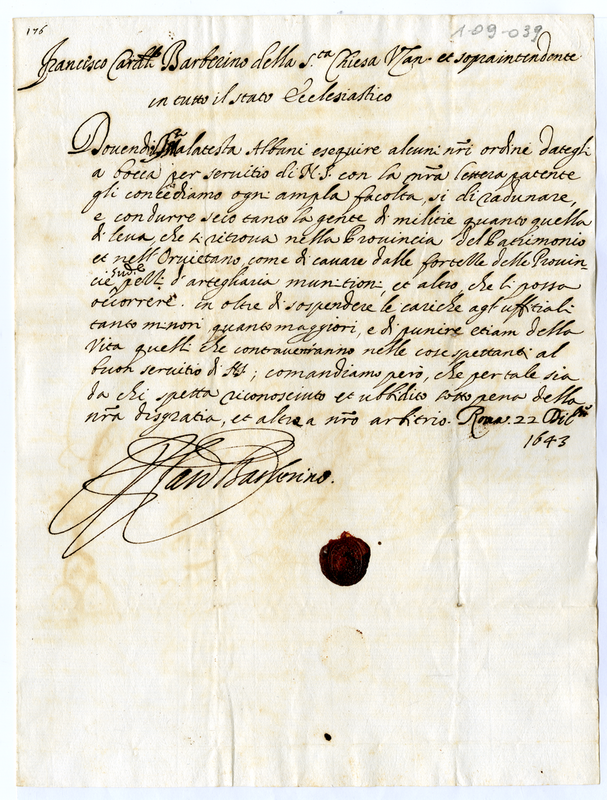 176
1-09-039
Francisco Card.le Barberino della S.cta Chiesa Van. et sopraintendente
in tutto il stato Ecclesiastico
Dovendo Malatesta Albani eseguire alcuni nri ordine dategli
a bocca per servitio di N.S. con la nra lettera patente
gli concediamo ogni ampla facolta, si di radunare,
e condurre seco tanto la gente di militie quanto quella
di leva, che si ritrova nella Provincia del Patrimonio
et nell'Orvietano, come di cavare dalle fortezze delle Provin-
cie pezzi d'artegliaria munitioni, et altro, che li possa
occorrere. in oltre di sospendere le cariche agl'uffitiali
tanto minori quanto maggiori, e di punire etiam della
Vita quelli che contraverranno nelle cose spettanti al
buon servitio di; comandiamo però, che per tale sia
da chi spetta riconosciuto et ubbidito sotto pena della
nra disgratia, et altre a nro arbitrio. Roma 22 Dicbre
1643
Barberino.